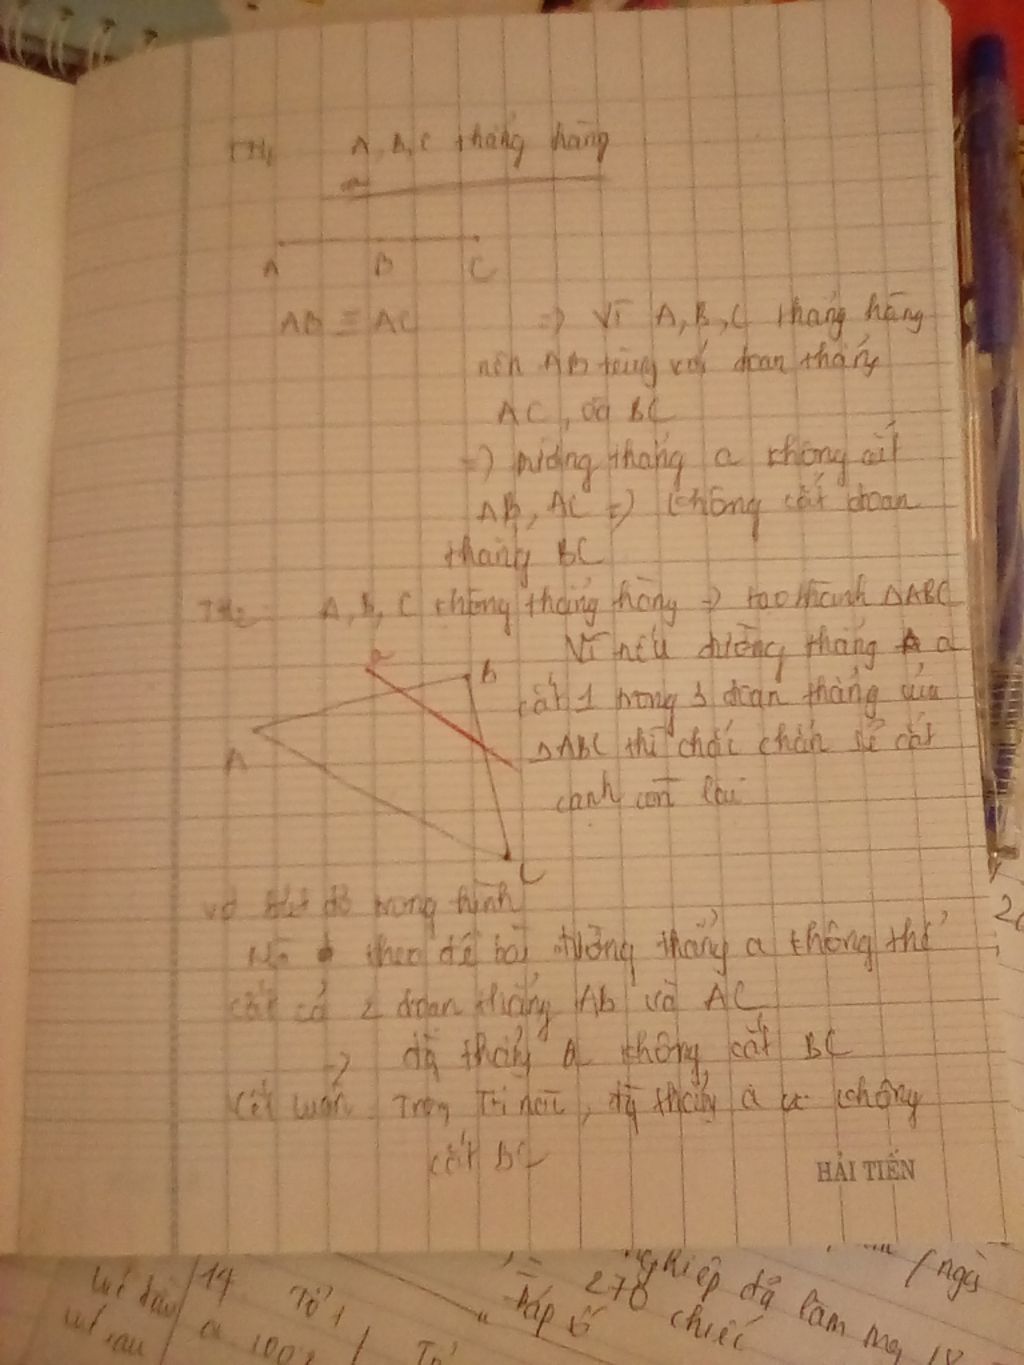 TH1 A, B, C thẳng hàng
a
A B C
AB ≡ AC => Vì A, B, C thẳng hàng
nên AB trùng với đoạn thẳng
AC, và BC
=> đường thẳng a không cắt
AB, AC => không cắt đoạn
thẳng BC
TH2: A, B, C không thẳng hàng => tạo thành ΔABC
Vì nếu đường thẳng a
a B
cắt 1 trong 3 đoạn thẳng của
A ΔABC thì chắc chắn sẽ cắt
cạnh còn lại
C
trong hình
theo đề bài đường thẳng a không thể
cắt cả 2 đoạn thẳng AB và AC
=> đg thẳng a không cắt BC
Kết luận: Trong TH nào, đg thẳng a không
cắt BC
HẢI TIẾN
19 Tổ 1
= 270
chiếc
đáp số
nghiệp đã làm
/ngày